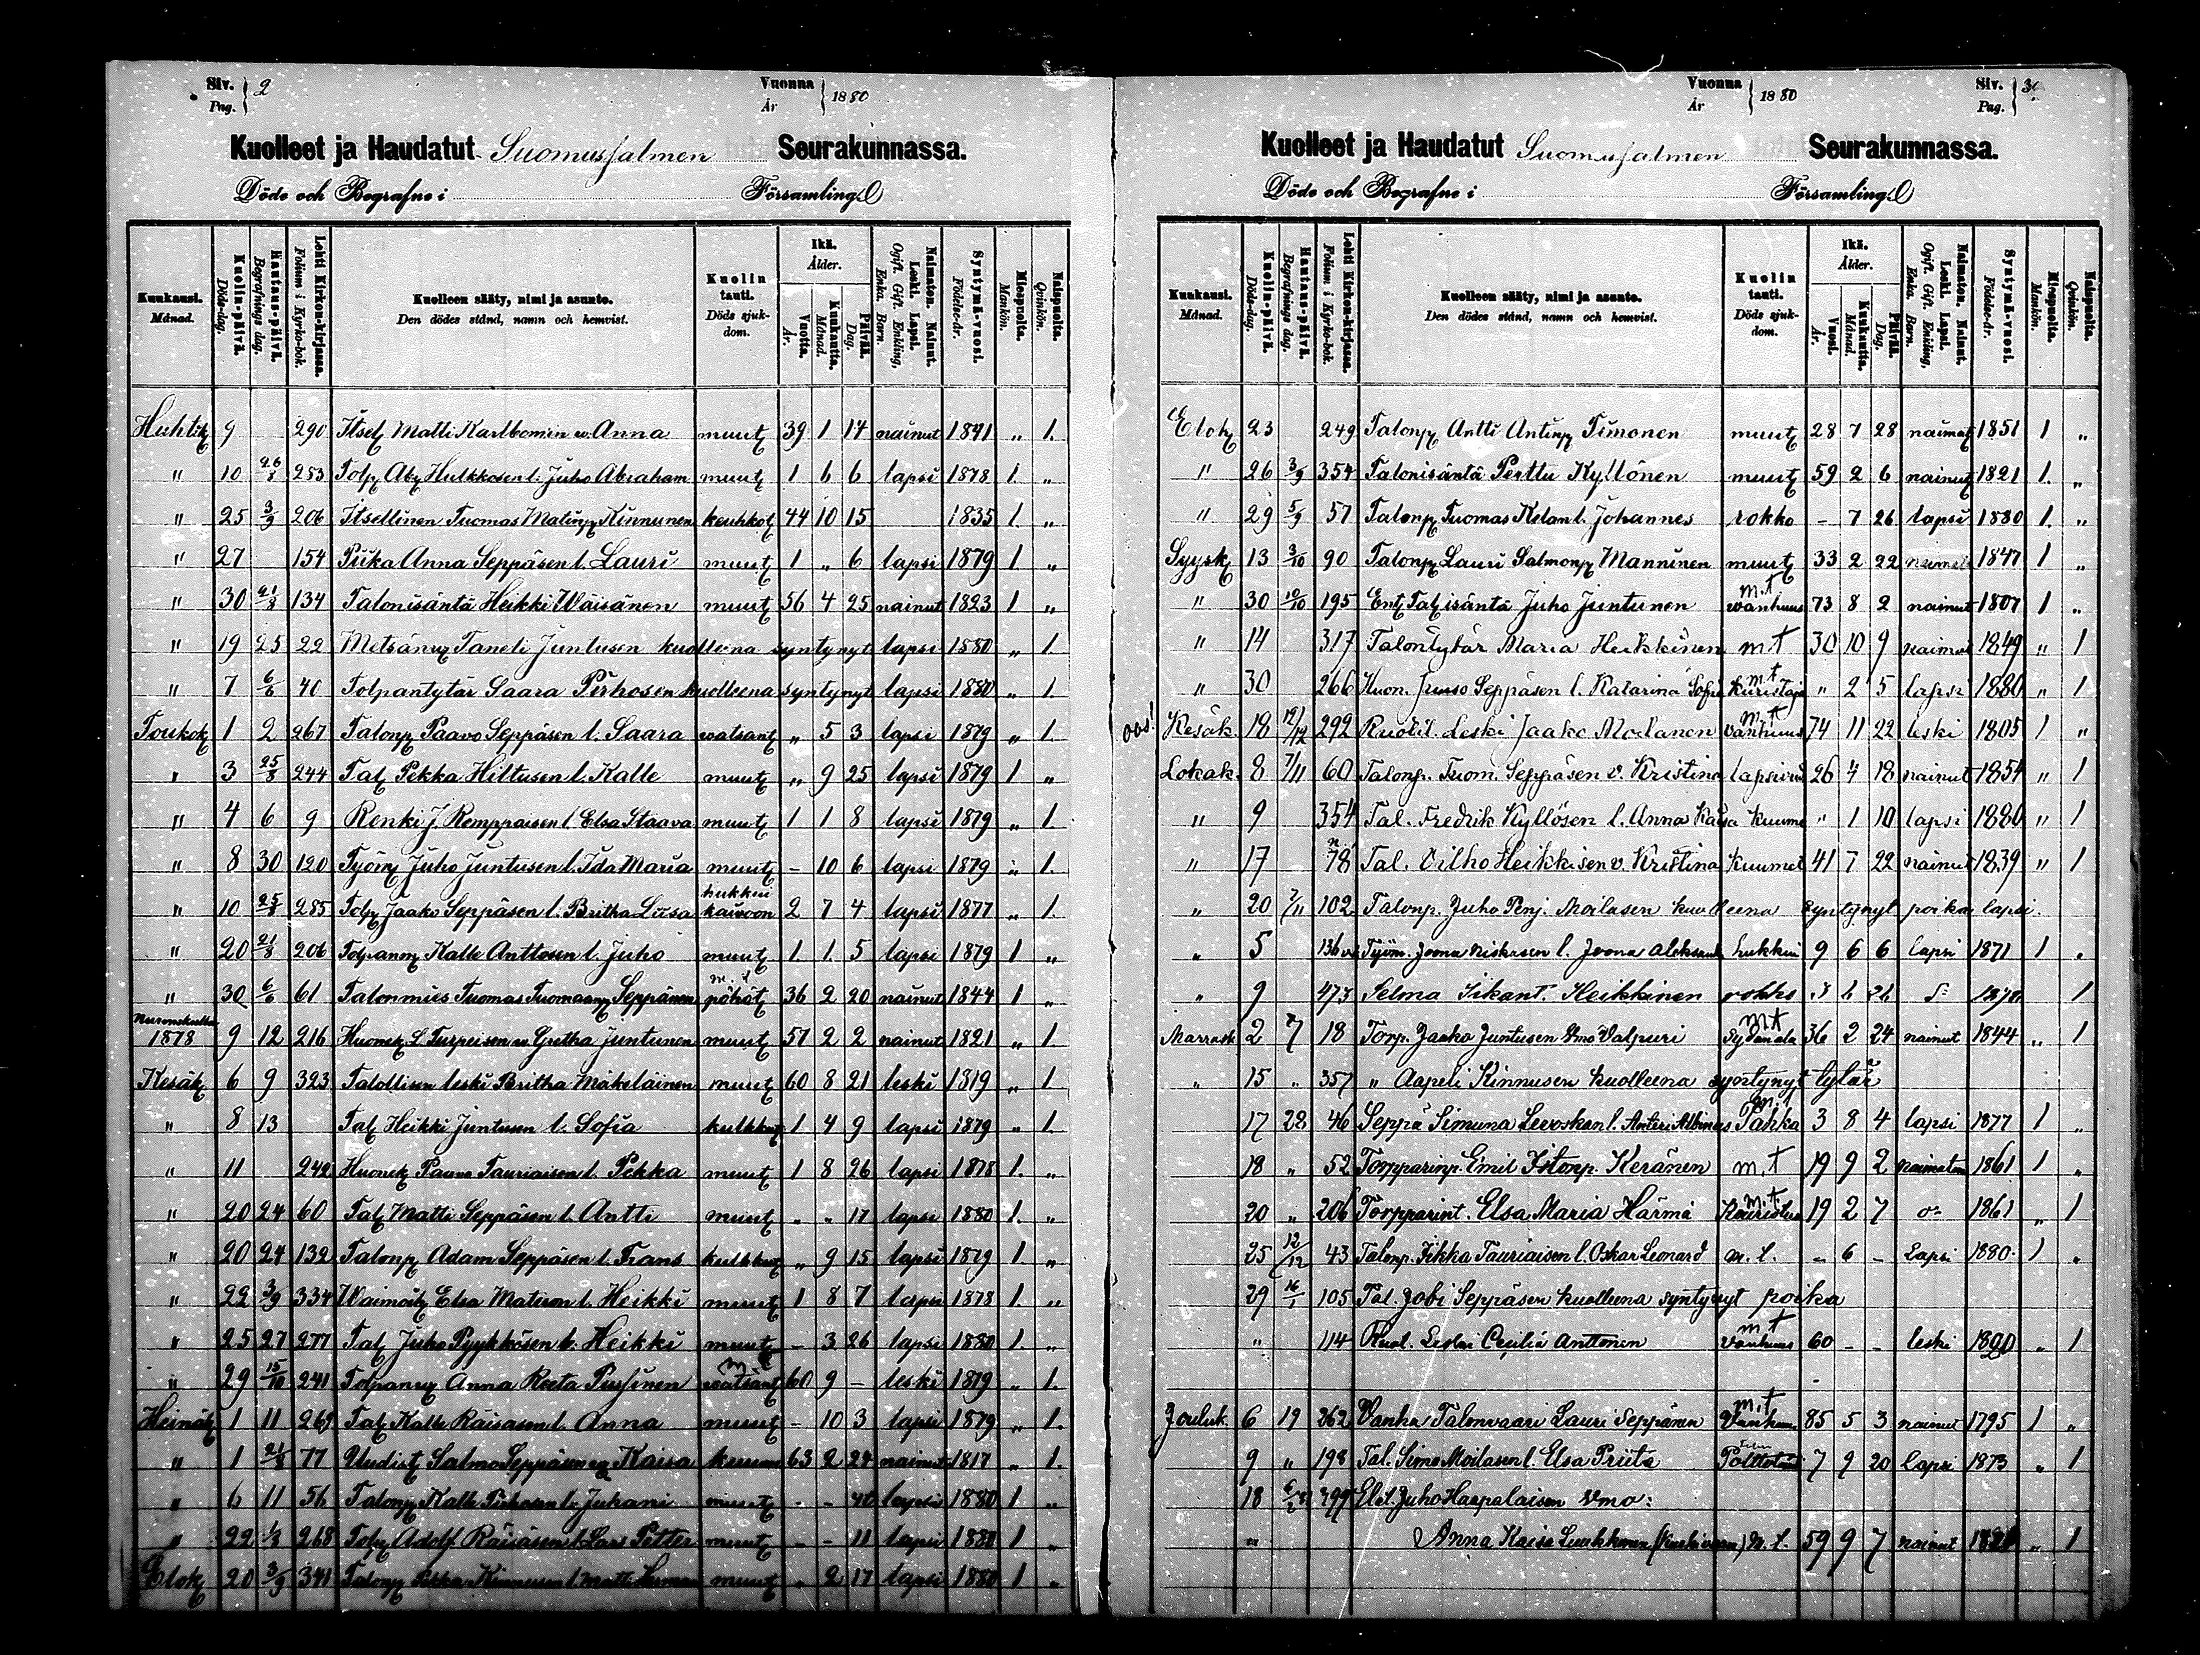 Siv. Pag. 2
Vuonna År 1880
Kuolleet ja Haudatut Suomussalmen Seurakunnassa.
Döde och Begrafne i Församling.
Kuukausi. Månad.
Kuolin-päivä. Döds-dag.
Hautaus-päivä. Begrafnings dag.
Lehti Kirkon-kirjassa. Folium i Kyrko-bok.
Kuolleen sääty, nimi ja asunto. Den dödes stånd, namn och hemvist.
Kuolin tauti. Döds sjukdom.
Ikä. Ålder.
Vuotta. År.
Kuukautta. Månad.
Päivää. Dag.
Naimaton. Nainut. Leski. Lapsi. Ogift. Gift. Enkling, Enka. Barn.
Syntymä-vuosi. Födelse-år.
Miespuolta. Mankön.
Naispuolta. Qvinkön.
Huhtik 9 290 Itsel Matti Karlbomin v. Anna muut 39 1 14 nainut 1841 „ 1.
„ 10 26/8 253 Tolp Ab Hulkkosen l. Juho Abraham muut 1 6 6 lapsi 1878 1. „
„ 25 3/9 206 Itsellinen Tuomas Matinp Kinnunen keuhkot 44 10 15 1835 1. „
„ 27 154 Piika Anna Seppäsen l. Lauri muut 1 „ 6 lapsi 1879 1 „
„ 30 21/8 134 Talonisäntä Heikki Wäisänen muut 56 4 25 nainut 1823 1 „
„ 19 25 22 Metsän Taneli Juntusen kuolleena syntynyt lapsi 1880 „ 1.
„ 7 6/6 40 Tolpantytär Saara Pirhosen kuolleena syntynyt lapsi 1880 „ 1.
Toukok 1 2 267 Talonp Paavo Seppäsen l. Saara watsant „ 5 3 lapsi 1879 „ 1.
„ 3 25/8 244 Tal Pekka Hiltusen l. Kalle muut „ 9 25 lapsi 1879 1 „
„ 4 6 9 Renki J. Remppaisen l. Elsa Staava muut 1 1 8 lapsi 1879 „ 1.
„ 8 30 120 Työm Juho Juntusen l. Ida Maria muut - 10 6 lapsi 1879 „ 1.
„ 10 25/8 285 Tolp Jaako Seppäsen l. Britha Loesa hukkui kaiwoon 2 7 4 lapsi 1877 „ 1.
„ 20 21/8 206 Tolpann Kalle Anttosen l. Juho muut 1. 1. 5 lapsi 1879 1 „
„ 30 6/6 61 Talonmies Tuomas Tuomaanp Seppänen m.t pöhöt 36 2 20 nainut 1844 1 „
1878 9 12 216 Huonek L. Turpeisen v. Gretha Juntunen muut 57 2 2 nainut 1821 „ 1.
Kesäk 6 9 323 Talollisen leski Britha Mäkeläinen muut 60 8 21 leski 1819 „ 1.
„ 8 13 Tal Heikki Juntusen l. Sofia kulkkut 1 4 9 lapsi 1879 „ 1.
„ 11 242 Huonek Paavo Tauriaisen l. Pekka muut 1 8 26 lapsi 1878 1. „
„ 20 24 60 Tal Matti Seppäsen l. Antti muut „ „ 17 lapsi 1880 1. „
„ 20 24 132 Talonp Adam Seppäsen l. Frans kulkkut „ 9 15 lapsi 1879 1. „
„ 22 3/9 334 Waimoik Elsa Matison l. Heikki muut 1 8 7 lapsi 1878 1. „
„ 25 27 277 Tal Juho Pyykkösen l. Heikki muut - 3 26 lapsi 1880 1. „
„ 29 15/10 241 Tolpan Anna Reeta Piisinen m watsant 60 9 - leski 1819 „ 1.
Heinäk 1 11 269 Tal Kalle Räisäsen l. Anna muut - 10 3 lapsi 1879 „ 1.
„ 1 21/8 77 Uudist Salmo Seppäsen v. Kaisa kuume 63 2 24 nainut 1817 „ 1.
„ 6 11 56 Talonp Kalle Pirhosen l. Juhani muut - - lapsi 1880 1 „
„ 22 268 Tolp Adolf Räisäsen l. Lars Petter muut - - 11 lapsi 1880 1 „
Elok 20 3/9 341 Talonp Pekka Kinnusen l. Matti muut „ 2 17 lapsi 1880 1 „
Vuonna År 1880
Siv. Pag. 3
Kuolleet ja Haudatut Suomussalmen Seurakunnassa.
Döde och Begrafne i Församling.
Kuukausi. Månad.
Kuolin-päivä. Döds-dag.
Hautaus-päivä. Begrafnings dag.
Lehti Kirkon-kirjassa. Folium i Kyrko-bok.
Kuolleen sääty, nimi ja asunto. Den dödes stånd, namn och hemvist.
Kuolin tauti. Döds sjukdom.
Ikä. Ålder.
Vuosi. År.
Kuukautta. Månad.
Päivää. Dag.
Naimaton. Nainut. Leski. Lapsi. Ogift. Gift. Enkling, Enka. Barn.
Syntymä-vuosi. Födelse-år.
Miespuolta. Mankön.
Naispuolta. Qvinkön.
Elok 23 249 Talonp Antti Antinp Timonen muut 28 7 28 naimat 1851 1 „
„ 26 3/9 354 Talonisäntä Perttu Kyllönen muut 59 2 6 nainut 1821 1. „
„ 29 5/9 57 Talonp Tuomas Kelan l. Johannes rokko - 7 26 lapsi 1880 1. „
Syysk 13 3/10 90 Talonp Lauri Salmonp Manninen muut 33 2 22 naimat 1847 1 „
„ 30 10/10 195 Ent Tal isäntä Juho Juntunen m.t wanhuus 73 8 2 nainut 1807 1 „
„ 14 317 Talontytär Maria Heikkinen m.t 30 10 9 naimat 1849 „ 1
„ 30 266 Huon. Juuso Seppäsen l. Katarina Sofia m.t kuristaja „ 2 5 lapsi 1880 „ 1
oos! Kesäk. 18 12/12 292 Ruotil. Leski Jaako Moilanen m.t vanhuus 74 11 22 leski 1805 1 „
Lokak. 8 7/11 60 Talonp. Tuom. Seppäsen v. Kristina lapsivu 26 4 18 nainut 1854 „ 1
„ 9 354 Tal. Fredrik Kyllösen l. Anna Kaisa kuume „ 1 10 lapsi 1880 „ 1
„ 17 78 Tal. Vilho Heikkisen v. Kristina kuumet 41 7 22 nainut 1839 „ 1
„ 20 7/11 102 Talonp. Juho Penj. Moilasen kuolleena syntynyt poika lapsi.
„ 5 136 Työm. Joona Kiskisen l. Joona Aleksand hukkui 9 6 6 lapsi 1871 1 „
„ 9 473 Selma Sikant. Heikkinen rokko 6 26 1
Marrask 2 7 18 Torp. Jaako Juntusen vmo Valpuri m.t Sydänala 36 2 24 nainut 1844 „ 1
„ 15 „ 357 „ Aapeli Kinnusen kuolleena syntynyt tytär
17 28 46 Seppä Simuna Leevoskan l. Anteri Albinus m.t Pahka 3 8 4 lapsi 1877 1 „
18 „ 52 Torpparinp. Emil Istonp. Keränen m.t 19 9 2 naimaton 1861 1 „
20 „ 206 Torpparint. Elsa Maria Härmä m.t Kuristus 19 2 7 o: 1861 „ 1
25 12/12 43 Talonp. Pekka Tauriaisen l. Oskar Leonard m.t. - 6 - Lapsi 1880. 1 „
29 16/1 105 Tal. Jobi Seppäsen kuolleena syntynyt poika
„ 114 Ruot. Leski Cecilia Anttonen m.t vanhuus 60 - - leski 1820 „ 1
Jouluk. 6 19 262 Vanha Talonvaari Lauri Seppänen m.t Vanhuus 85 5 3 nainut 1795 1 „
9 „ 198 Tal. Simo Moilasen l. Elsa Priita 7 9 20 Lapsi 1873 „ 1
18 299 Elät. Juho Haapalaisen vmo:
„ Anna Kaisa Luukkonen m. t. 59 9 7 nainut 1821 „ 1